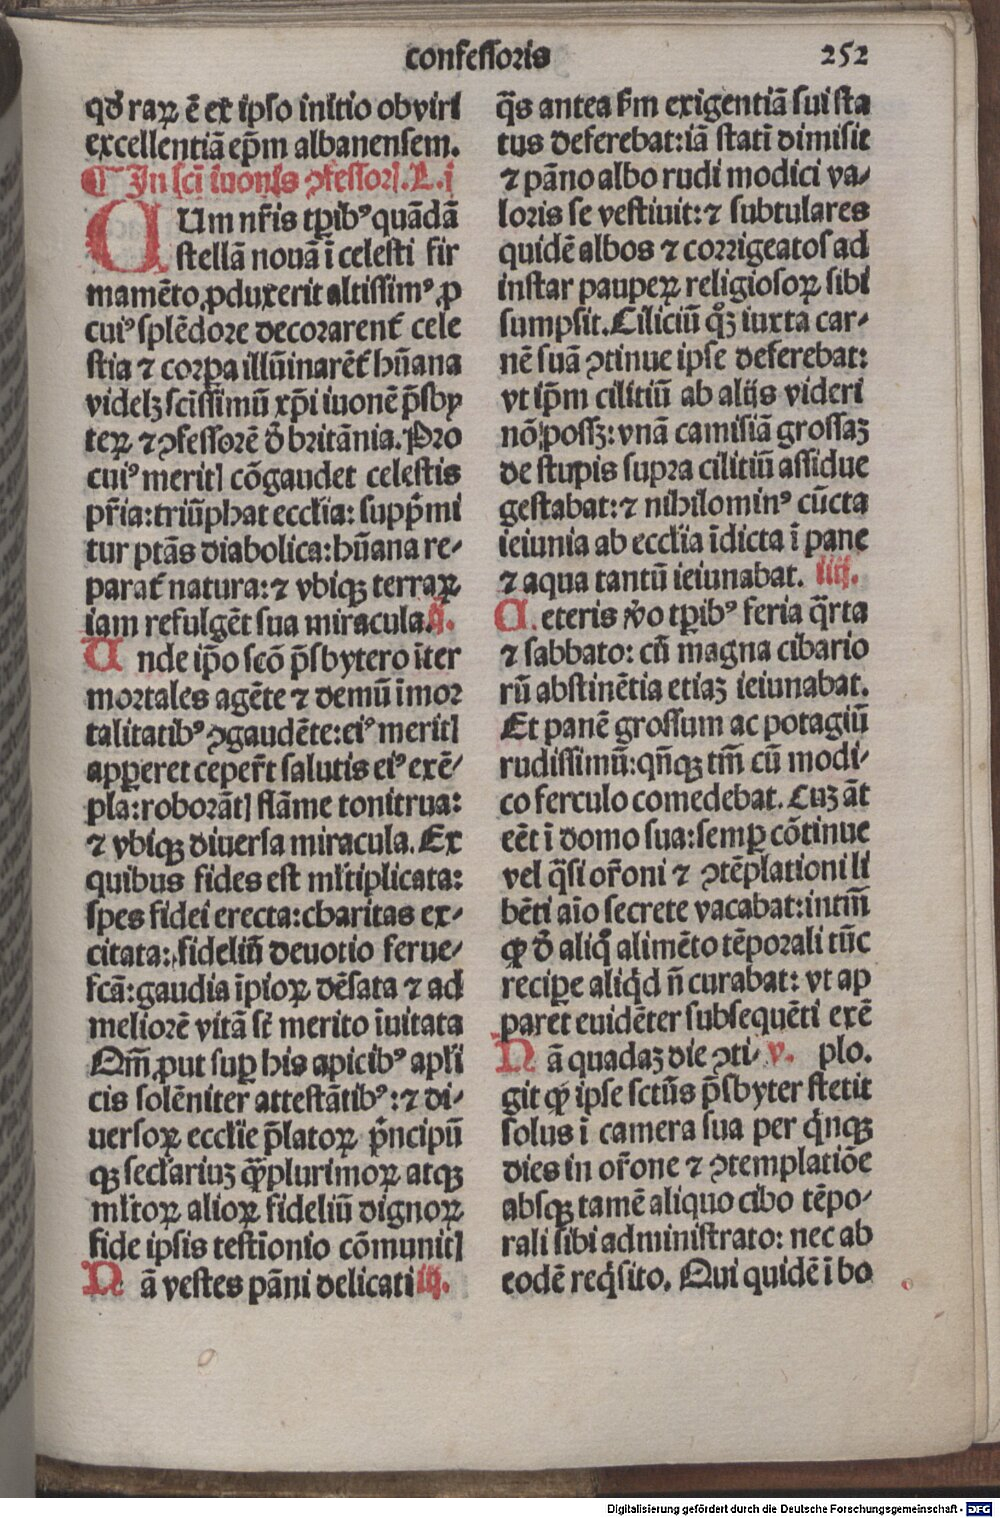 confessoris 252
qd raꝝ ē ex ipso initio ob viri
excellentiā ep̄m albanensem.
¶ In sc̄i iuonis ꝯfessorꝭ. L. i
CUm nr̄is tꝑibꝰ quādā
stellā nouā ī celesti fir
mamēto ꝓduxerit altissimꝰ, ꝓ
cuiꝰ splēdore decorarent̄ cele
stia ⁊ corꝑa illūinarēt̄ hūana
videlꝫ sc̄issimū xp̄i iuonē p̄sby
teꝝ ⁊ ꝯfessorē d̄ britānia. Pro
cuiꝰ meritꝭ cōgaudet celestis
pr̄ia: triūphat eccl̄ia: supp̄mi
tur ptās diabolica: hūana re⸗
parat̄ natura: ⁊ vbiqꝫ terraꝝ
iam refulgēt sua miracula. ij.
Unde ip̄o scō p̄sbytero īter
mortales agēte ⁊ demū īmor
talitatibꝰ ꝯgaudēte: eiꝰ meritꝭ
apꝑeret ceper̄t salutis eiꝰ exē⸗
pla: roborātꝭ flāme tonitrua:
⁊ vbiqꝫ diuersa miracula. Ex
quibus fides est ml̄tiplicata:
spes fidei erecta: charitas ex⸗
citata: fideliū deuotio ferue⸗
fcā: gaudia īpioꝝ dēsata ⁊ ad
meliorē vitā st̄ merito īuitata
Qm̄ ꝓut suꝑ his apicibꝰ apl̄i
cis solēniter attestātibꝰ: ⁊ di⸗
uersoꝝ eccl̄ie p̄latoꝝ p̄ncipū
qꝫ secl̄ariuꝫ qꝫplurimoꝝ atqꝫ
ml̄toꝝ alioꝝ fideliū dignoꝝ
fide ipsis testīonio cōmunitꝭ
Nā vestes pāni delicati iij.
q̄s antea ẜm exigentiā sui sta
tus deferebat: iā statī dimisit
⁊ pāno albo rudi modici va⸗
loris se vestiuit: ⁊ subtulares
quidē albos ⁊ corrigeatos ad
instar paupeꝝ religiosoꝝ sibi
sumpsit. Ciliciū qͦꝫ iuxta car⸗
nē suā ꝯtinue ipse deferebat:
vt ip̄m cilitiū ab alijs videri
nō possꝫ: vnā camisiā grossaꝫ
de stupis supra cilitiū assidue
gestabat: ⁊ nihilominꝰ cūcta
ieiunia ab eccl̄ia īdicta ī pane
⁊ aqua tantū ieiunabat. iiij.
Ceteris v̄o tꝑibꝰ feria q̄rta
⁊ sabbato: cū magna cibario
rū abstinētia etiaꝫ ieiunabat.
Et panē grossum ac potagiū
rudissimū: qn̄qꝫ tm̄ cū modi⸗
co ferculo comedebat. Cuꝫ āt
eēt ī domo sua: semꝑ cōtinue
vel q̄si or̄oni ⁊ ꝯtēplationi li
bēti aīo secrete vacabat: intm̄
ꝙ d̄ aliq̊ alimēto tēporali tūc
reciꝑe aliqd n̄ curabat: vt ap
paret euidēter subsequēti exē
Nā quadaꝫ die ꝯti⸗ v. plo.
git ꝙ ipse sctūs p̄sbyter stetit
solus ī camera sua per qnqꝫ
dies in or̄one ⁊ ꝯtemplatiōe
absqꝫ tamē aliquo cibo tēpo⸗
rali sibi administrato: nec ab
eodē reqsito. Qui quidē ī bo
Digitalisierung gefördert durch die Deutsche Forschungsgemeinschaft - DFG